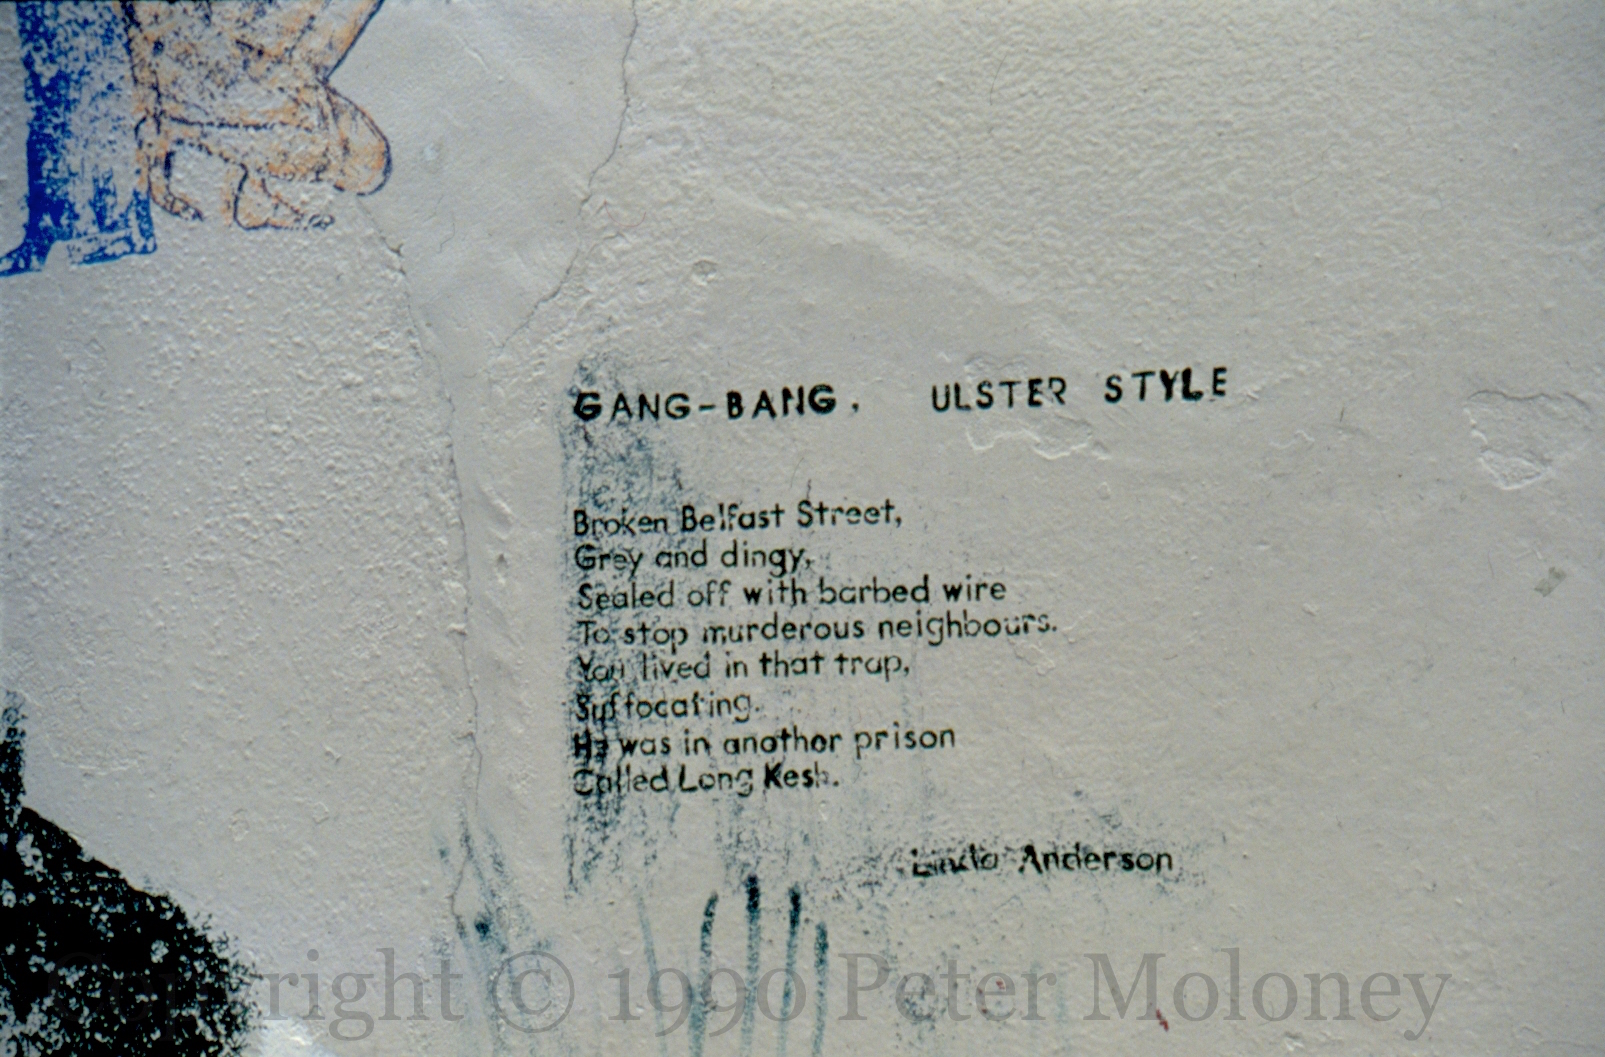 GANG-BANG, ULSTER STYLE
Broken Belfast Street,
Grey and dingy,
Sealed off with barbed wire
To stop murderous neighbours.
You lived in that trap,
Suffocating.
He was in another prison
Called Long Kesh.
Linda Anderson
Copyright © 1990 Peter Moloney